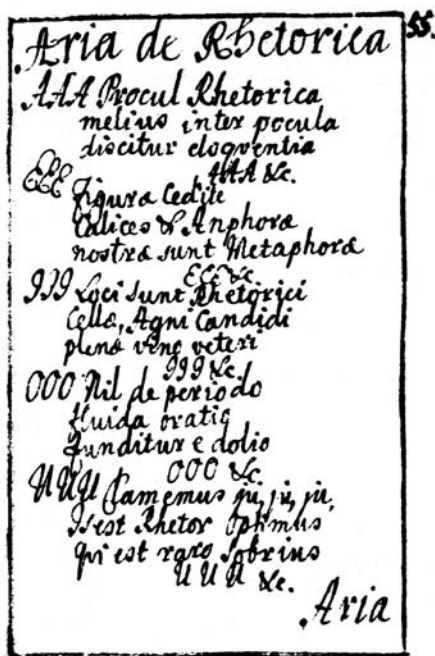 55.
Aria de Rhetorica
AAA Procul Rhetorica
melius inter pocula
discitur eloqventia
AAA &c.
EEE Figuræ Cedite
Calices & Anphoræ
nostræ sunt Metaphoræ
EEE &c
III Loci sunt Rhetorici
Cellæ, Agni Candidi
plenæ vino veteri
III &c.
OOO Nil de periodo
fluida oratio
funditur e dolio
OOO &c
UUU Clamemus ju, ju, ju,
Is est Rhetor Optimus
qvi est raro Sobrius
UUU &c.
Aria